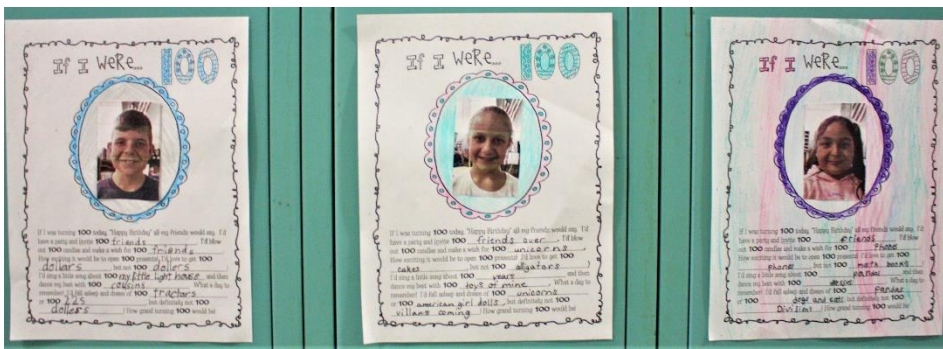 If I WeRe... 100
If I was turning 100 today, "Happy Birthday" all my friends would say. I'd
have a party and invite 100 friends. I'd blow
out 100 candles and make a wish for 100 friends.
How exciting it would be to open 100 presents! I'd love to get 100
dollars but not 100 dollers.
I'd sing a little song about 100 my little light house and then
dance my best with 100 cousins. What a day to
remember! I'd fall asleep and dream of 100 tractors
or 100 225, but definitely not 100
dollers! How grand turning 100 would be!
If I WeRe... 100
If I was turning 100 today, "Happy Birthday" all my friends would say. I'd
have a party and invite 100 friends over. I'd blow
out 100 candles and make a wish for 100 unicorns.
How exciting it would be to open 100 presents! I'd love to get 100
cakes but not 100 alligators.
I'd sing a little song about 100 years and then
dance my best with 100 toys of mine. What a day to
remember! I'd fall asleep and dream of 100 unicorns
or 100 american girl dolls, but definitely not 100
villans coming! How grand turning 100 would be!
If I WeRe... 100
If I was turning 100 today, "Happy Birthday" all my friends would say. I'd
have a party and invite 100 friends. I'd blow
out 100 candles and make a wish for 100 Phone.
How exciting it would be to open 100 presents! I'd love to get 100
phones but not 100 math books.
I'd sing a little song about 100 pandas and then
dance my best with 100. What a day to
remember! I'd fall asleep and dream of 100 pandas
or 100 dogs and cats, but definitely not 100
Division! How grand turning 100 would be!